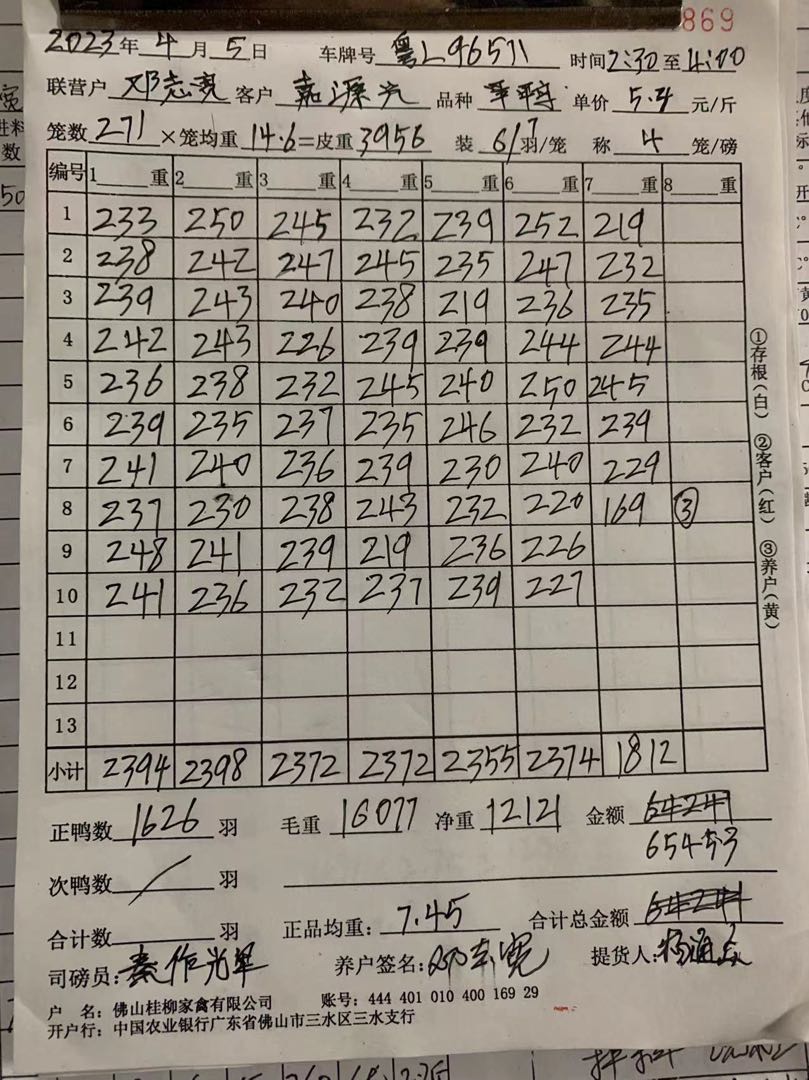 869
2023年4月5日 车牌号 粤L96511 时间2:30至4:00
联营户 邓志亮 客户 嘉源兴 品种 单价 5.4 元/斤
笼数 271 ×笼均重 14.6=皮重3956 装 6/7羽/笼 称 4 笼/磅
编号 1 重 2 重 3 重 4 重 5 重 6 重 7 重 8 重
1 233 250 245 232 239 252 219
2 238 242 247 245 235 247 232
3 239 243 240 238 219 236 235
4 242 243 226 239 239 244 244
5 236 238 232 245 240 250 245
6 239 235 237 235 246 232 239
7 241 240 236 239 230 240 229
8 237 230 238 243 232 220 169 ③
9 248 241 239 219 236 226
10 241 236 232 237 239 227
11
12
13
小计 2394 2398 2372 2372 2355 2374 1812
①存根(白) ②客户(红) ③养户(黄)
正鸭数 1626 羽 毛重 16077 净重 12121 金额 64241
65453
次鸭数 / 羽
合计数 羽 正品均重: 7.45 合计总金额 64241
司磅员: 养户签名: 提货人:
户 名: 佛山桂柳家禽有限公司 账号: 444 401 010 400 169 29
开户行: 中国农业银行广东省佛山市三水区三水支行